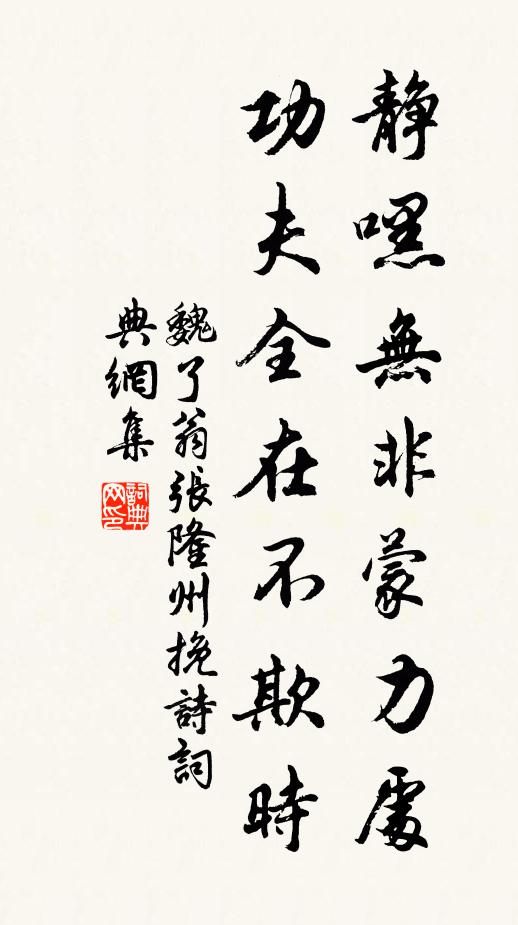 靜嘿無非蒙力處
功夫全在不欺時
魏了翁張隆州挽詩詞
典網集
詞典网印